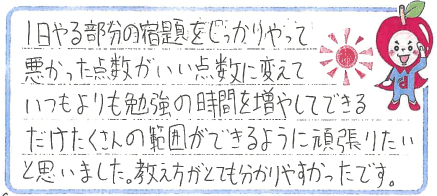 1日やる部分の宿題をしっかりやって
悪かった点数がいい点数に変えて
いつもよりも勉強の時間を増やしてできる
だけたくさんの範囲ができるように頑張りたい
と思いました。教え方がとても分かりやすかったです。